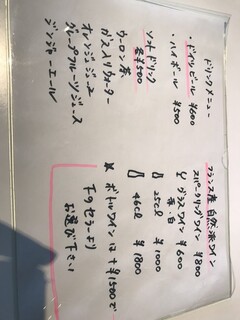 ドリンクメニュー
・ドイツビール ¥600
・ハイボール ¥500
ソフトドリンク
各¥500
ウーロン茶
ガス入りウォーター
オレンジジュース
グレープフルーツジュース
ジンジャーエール
フランス産 自然派ワイン
スパークリングワイン ¥800
グラスワイン ¥600
赤・白
25cl ¥1000
46cl ¥1800
* ボトルワインは +¥1500で
下のセラーより
お選び下さい